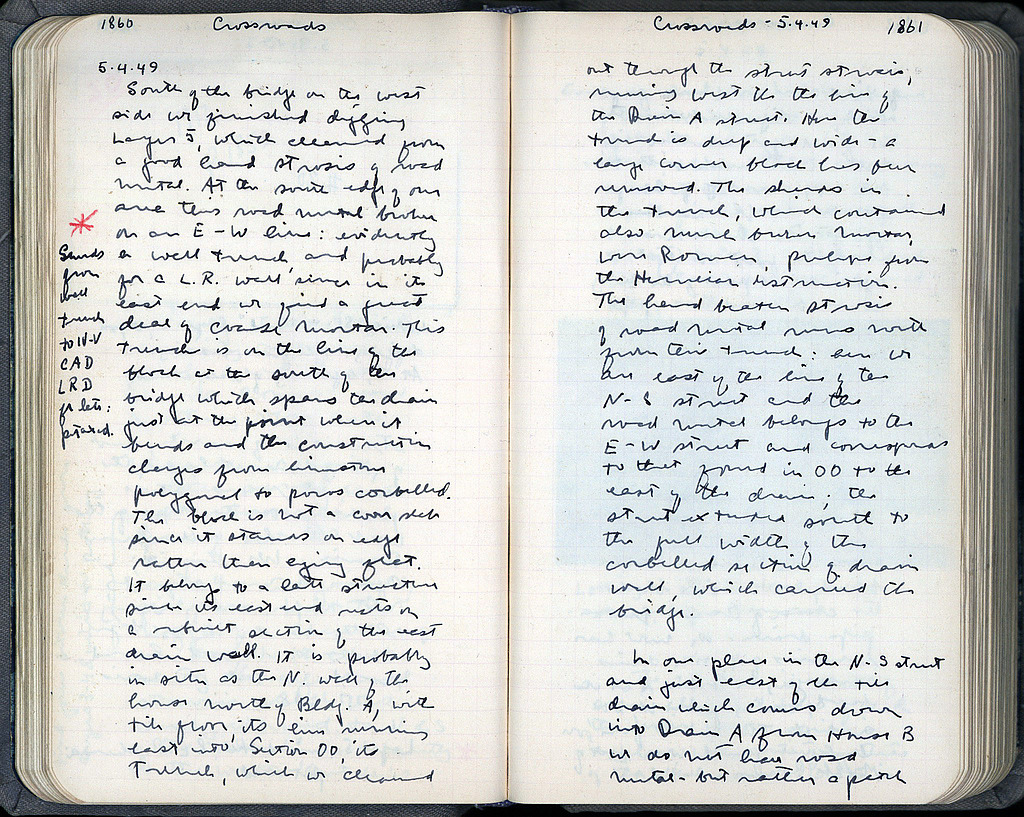 1860 Crossroads
5.4.49
South of the bridge on the west
side we finished digging
Layer 5, which cleaned from
a good hard strosis of road
metal. At the south edge of our
area this road metal broken
on an E-W line: evidently
a wall trench, and probably
for a L.R. wall since in its
east end we find a great
deal of coarse mortar. This
trench is on the line of the
block at the south of the
bridge which spans the drain
just at the point where it
bends and the construction
changes from limestone
polygonal to poros corbelled.
The block is not a cover slab
since it stands on edge
rather than lying flat.
It belongs to a late structure
since its east end rests on
a rebuilt section of the east
drain wall. It is probably
in situ as the N. wall of the
house north of Bldg. A, with
tile floor, its line running
east into Section OO, its
Trench, which we cleaned
Sherds
from
wall
trench
to IV-V
CAD
LRD
Crossroads - 5.4.49 1861
out through the street strosis,
running west to the line of
the Drain A street. Here the
trench is deep and wide - a
large corner block has been
removed. The sherds in
the trench, which contained
also much burnt mortar,
were Roman, perhaps from
the Herulian destruction.
The hard beaten strosis
of road metal runs north
from this trench: here we
are east of the line of the
N-S street and the
road metal belongs to the
E-W street and corresponds
to that found in OO to the
east of the drain; the
street extended south to
the full width of the
corbelled section of drain
wall, which carried the
bridge.
In one place in the N-S street
and just east of the tile
drain which comes down
into Drain A from House B
we do not have road
metal - but rather a patch